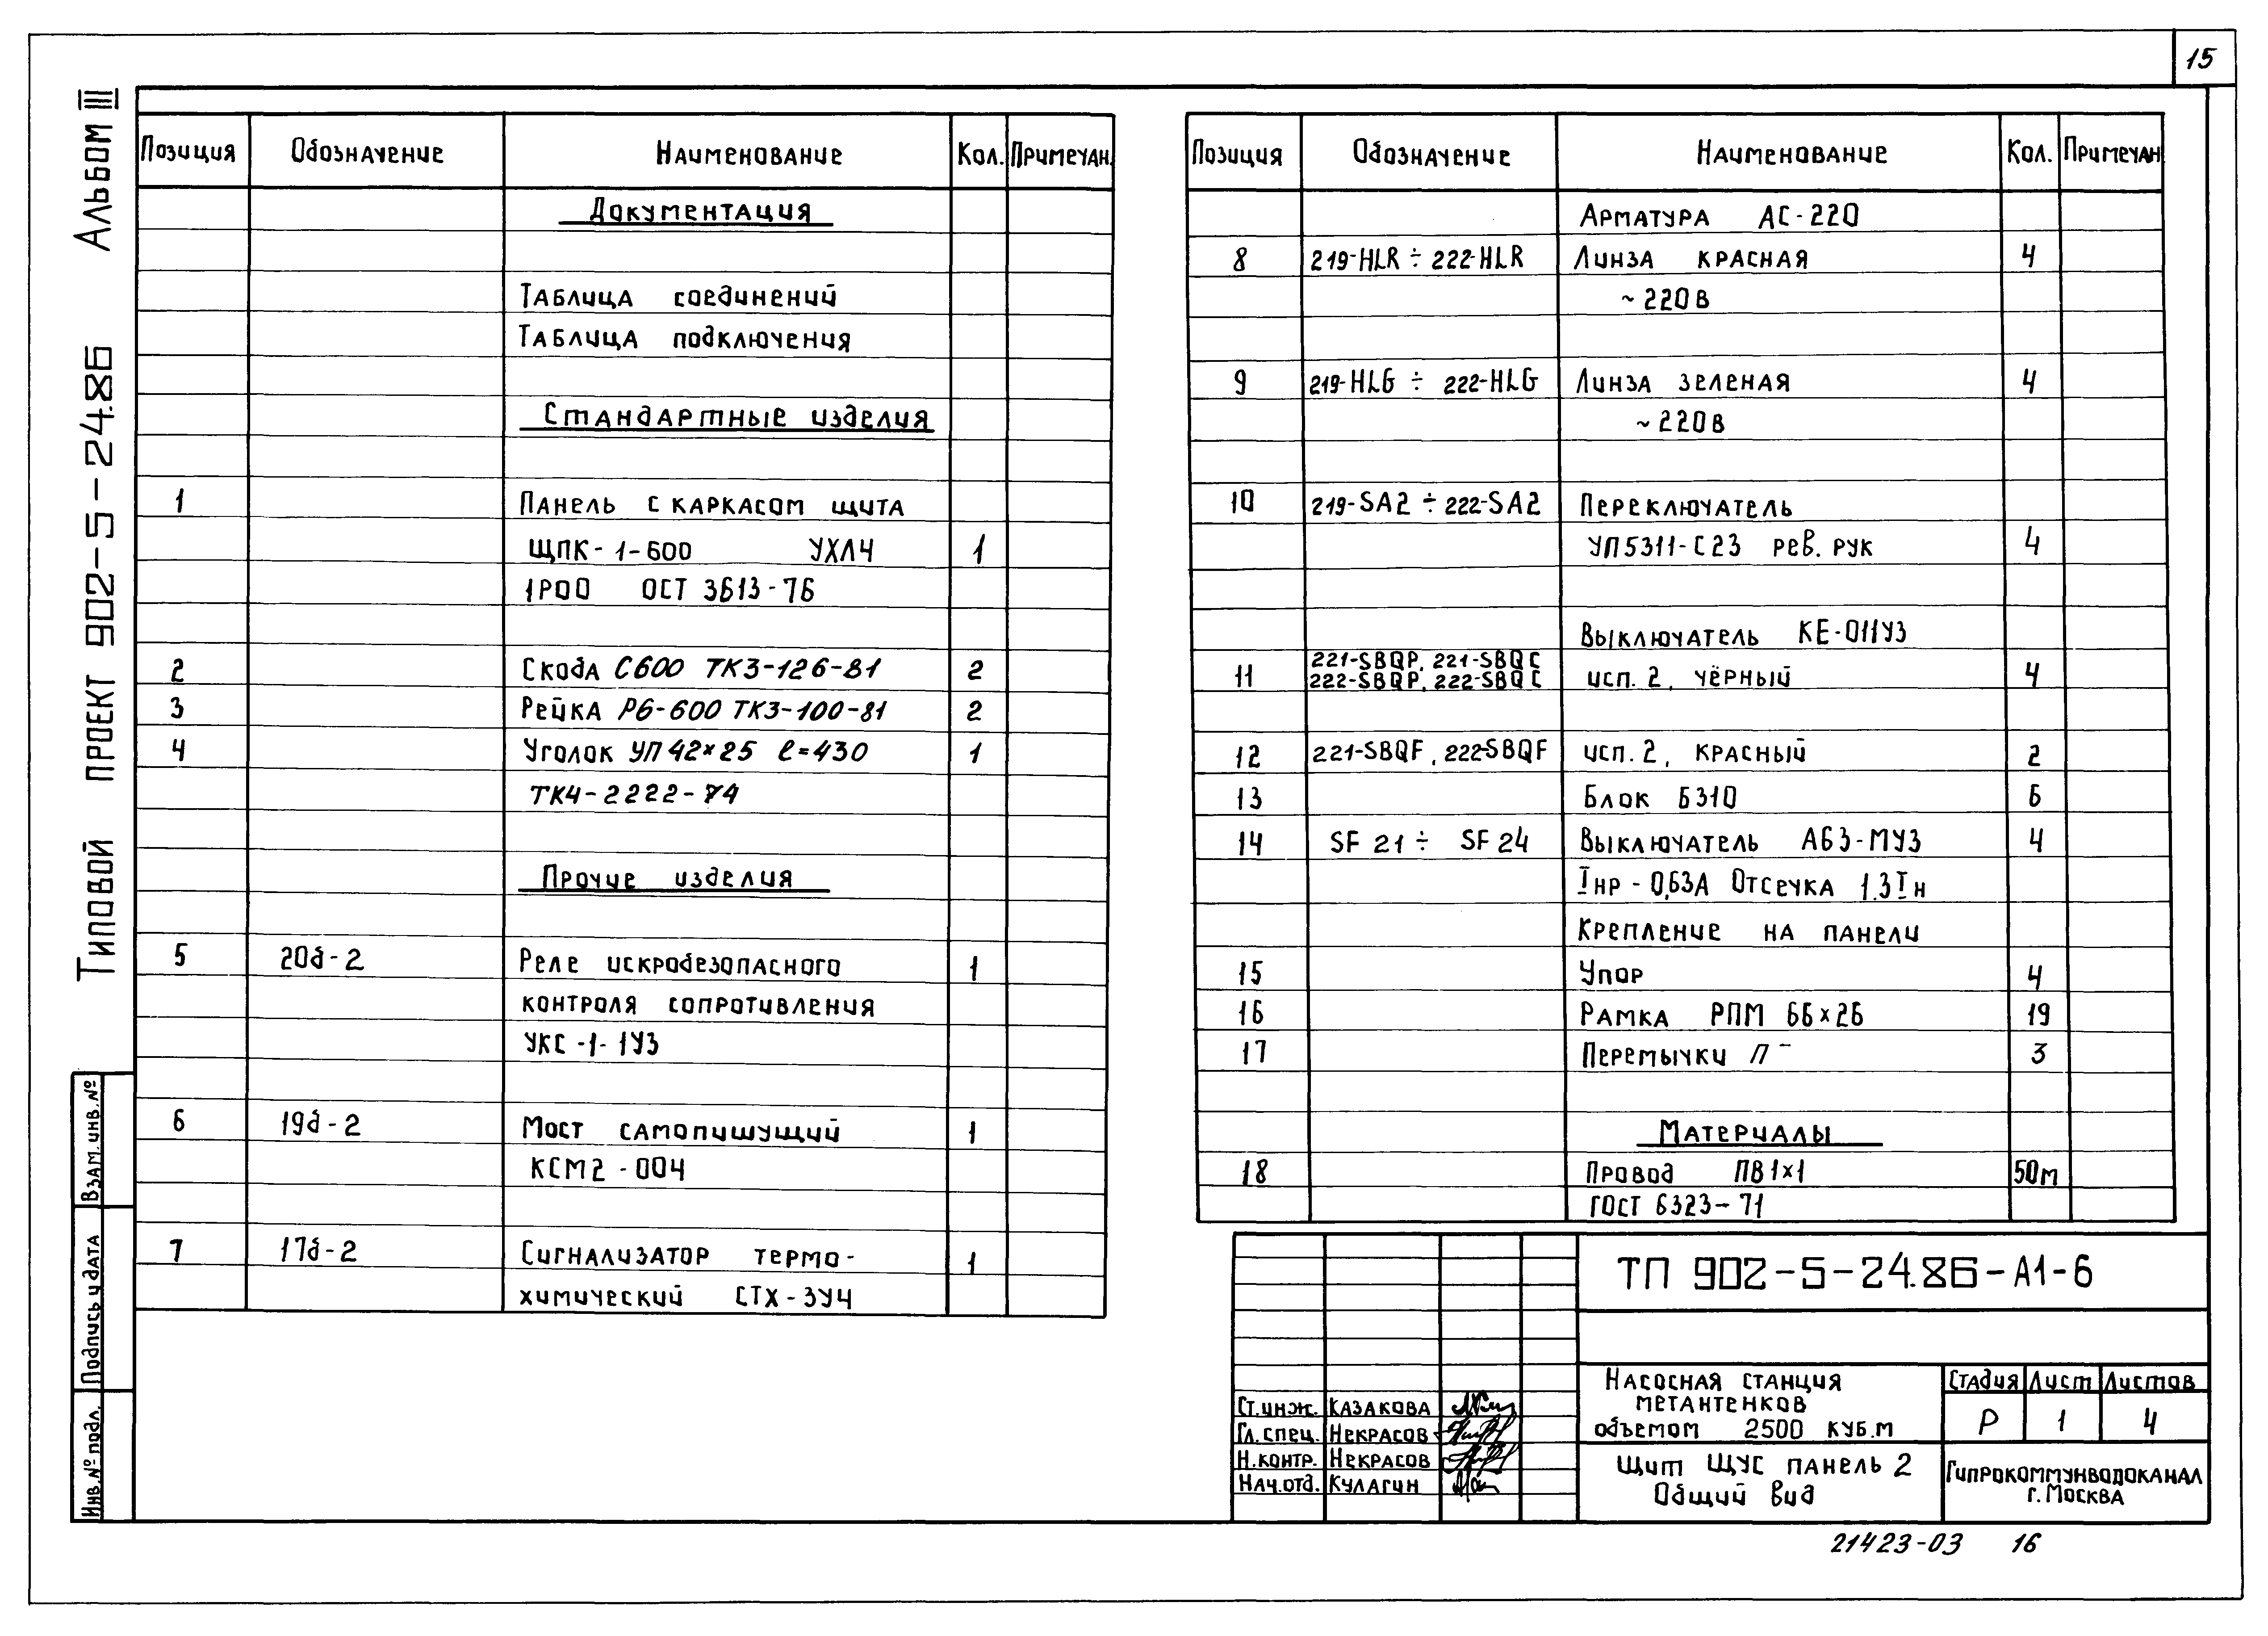 15
Альбом III
Типовой проект 902-5-24.86
Взам. инв. №
Подпись и дата
Инв. № подл.
Позиция Обозначение Наименование Кол. Примечан.
Документация
Таблица соединений
Таблица подключения
Стандартные изделия
1 Панель с каркасом щита
ЩПК-1-600 УХЛ4 1
1Р00 ОСТ 3613-76
2 Скоба С600 ТК3-126-81 2
3 Рейка Р6-600 ТК3-100-81 2
4 Уголок УП 42×25 ℓ=430 1
ТК4-2222-74
Прочие изделия
5 20б-2 Реле искробезопасного 1
контроля сопротивления
УКС-1-1У3
6 19б-2 Мост самопишущий 1
КСМ2-004
7 17б-2 Сигнализатор термо- 1
химический СТХ-3У4
Позиция Обозначение Наименование Кол. Примечан
Арматура АС-220
8 219-HLR ÷ 222-HLR Линза красная 4
~220В
9 219-HLG ÷ 222-HLG Линза зеленая 4
~220В
10 219-SA2 ÷ 222-SA2 Переключатель
УП5311-С23 рев. рук 4
Выключатель КЕ-011У3
221-SBQP, 221-SBQC
11 222-SBQP, 222-SBQC исп. 2, чёрный 4
12 221-SBQF, 222-SBQF исп. 2, красный 2
13 Блок Б310 6
14 SF 21 ÷ SF 24 Выключатель А63-МУ3 4
Iнр - 0,63А Отсечка 1.3Iн
Крепление на панели
15 Упор 4
16 Рамка РПМ 66×26 19
17 Перемычки П- 3
Материалы
18 Провод ПВ1×1 50м
ГОСТ 6323-71
ТП 902-5-24.86-А1-6
Насосная станция
метантенков
объемом 2500 куб.м
Стадия Лист Листов
Р 1 4
Ст.инж. Казакова
Гл. спец. Некрасов
Н.контр. Некрасов
Нач.отд. Кулагин
Щит ЩУС панель 2
Общий вид
Гипрокоммунводоканал
г. Москва
21423-03 16